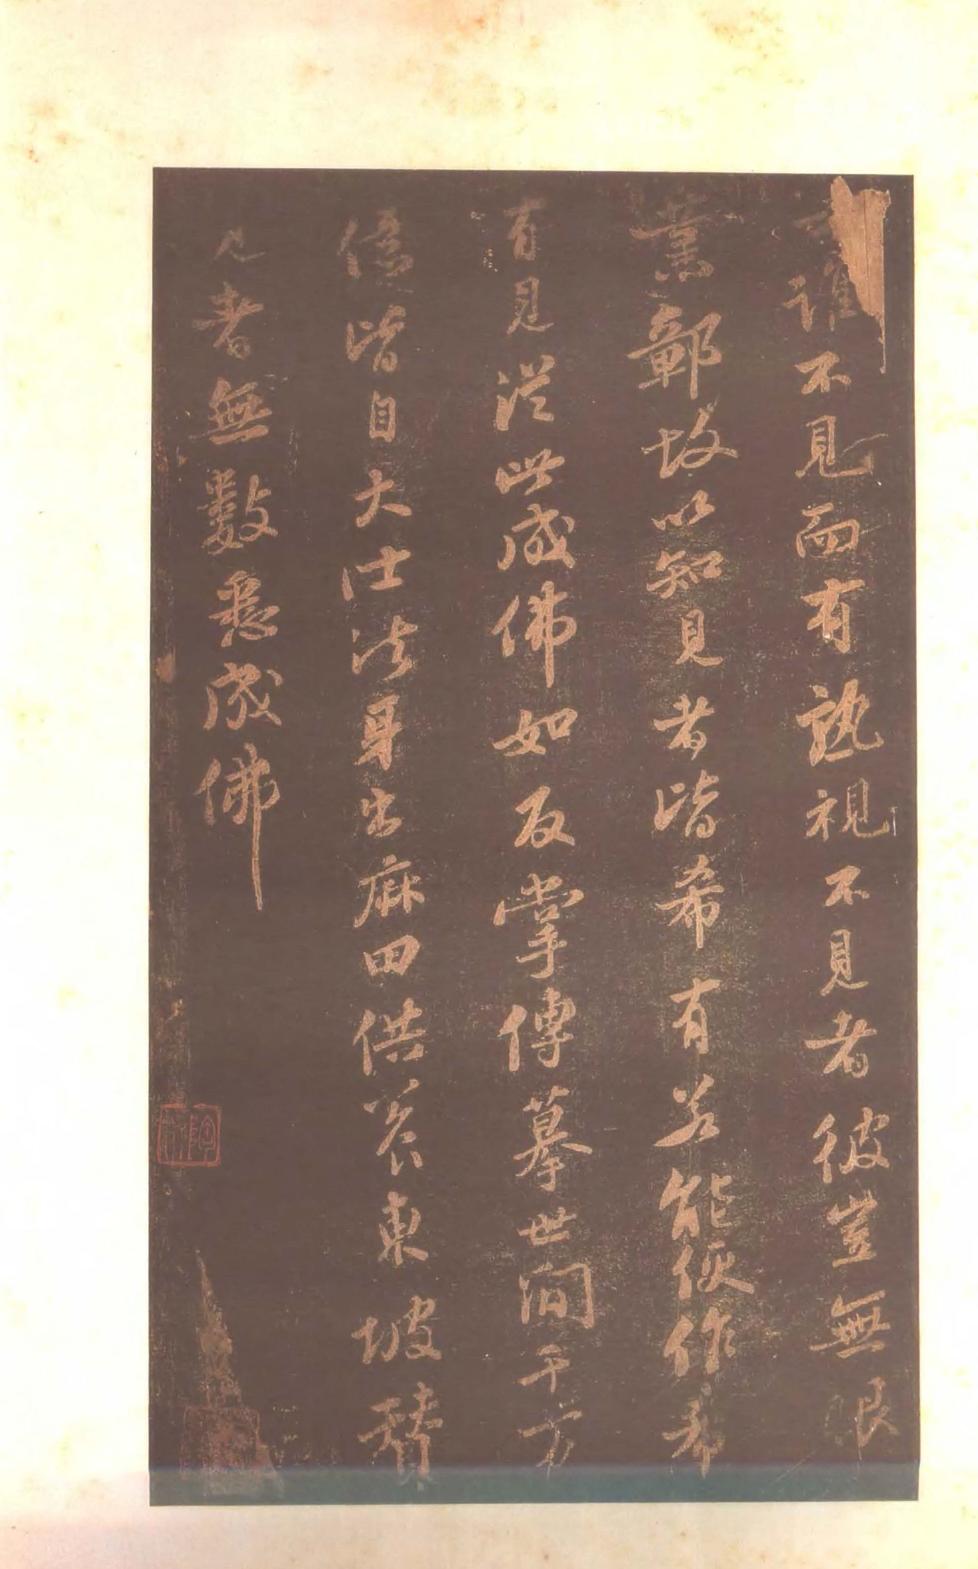 誰不見而有孰視不見者彼豈無眼
業鄣故以知見者皆希有若能仮作希
有見從此成佛如反掌傳摹世間千万
億皆自大士法身出麻田供養東坡贊
見者無數悉成佛